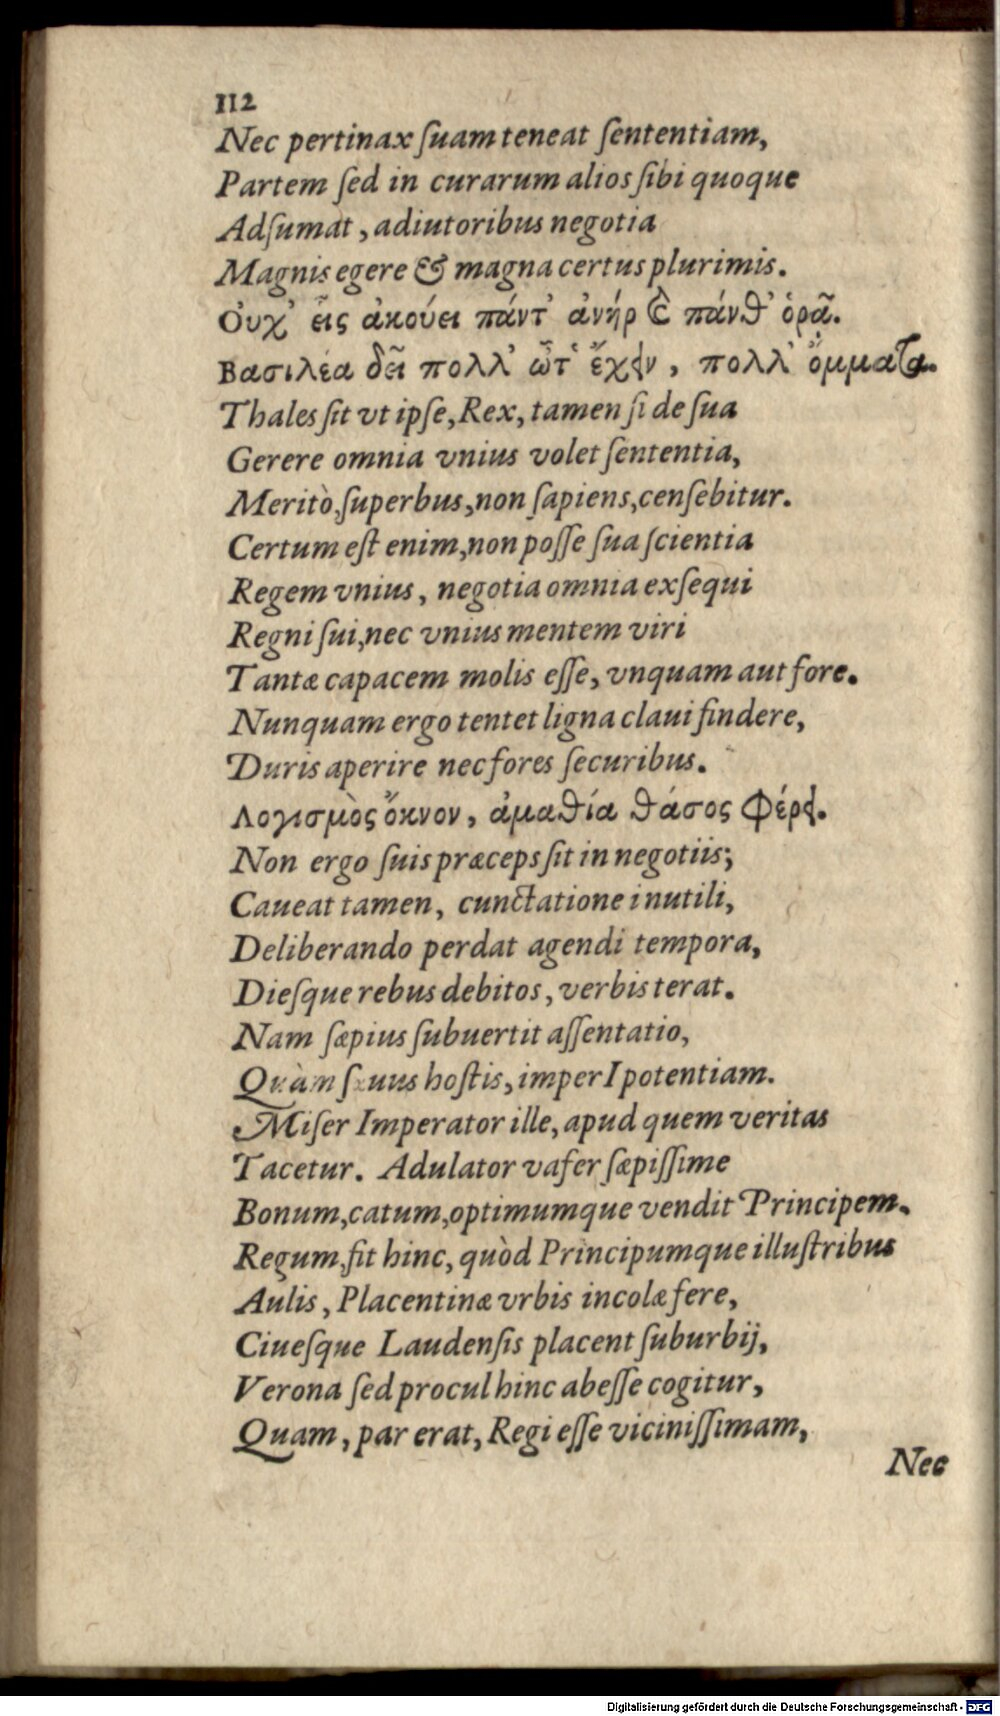 112
Nec pertinax ſuam teneat ſententiam,
Partem ſed in curarum alios ſibi quoque
Adſumat, adiutoribus negotia
Magnis egere & magna certus plurimis.
Οὐχ' εἷς ἀκούει πάντ' ἀνήρ & πάνθ' ὁρᾷ.
Βασιλέα δεῖ πολλ' ὦτ' ἔχειν, πολλ' ὄμματα.
Thales ſit vt ipſe, Rex, tamen ſi de ſua
Gerere omnia vnius volet ſententia,
Meritò, ſuperbus, non ſapiens, cenſebitur.
Certum eſt enim, non poſſe ſua ſcientia
Regem vnius, negotia omnia exſequi
Regni ſui, nec vnius mentem viri
Tantæ capacem molis eſſe, vnquam aut fore.
Nunquam ergo tentet ligna claui findere,
Duris aperire nec fores ſecuribus.
Λογισμὸς ὄκνον, ἀμαθία θάσος φέρει.
Non ergo ſuis præceps ſit in negotiis;
Caueat tamen, cunctatione inutili,
Deliberando perdat agendi tempora,
Dieſque rebus debitos, verbis terat.
Nam ſæpius ſubuertit aſſentatio,
Quàm ſæuus hoſtis, imperI potentiam.
Miſer Imperator ille, apud quem veritas
Tacetur. Adulator vafer ſæpiſſime
Bonum, catum, optimumque vendit Principem.
Regum, fit hinc, quòd Principumque illuſtribus
Aulis, Placentinæ vrbis incolæ fere,
Ciueſque Laudenſis placent ſuburbij,
Verona ſed procul hinc abeſſe cogitur,
Quam, par erat, Regi eſſe viciniſſimam,
Nec
Digitalisierung gefördert durch die Deutsche Forschungsgemeinschaft - DFG